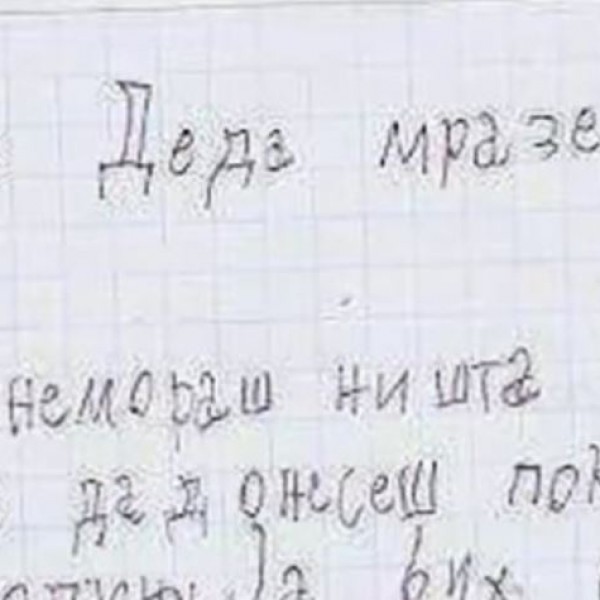 Деда мразе
немораш ништа
да донесеш
бих